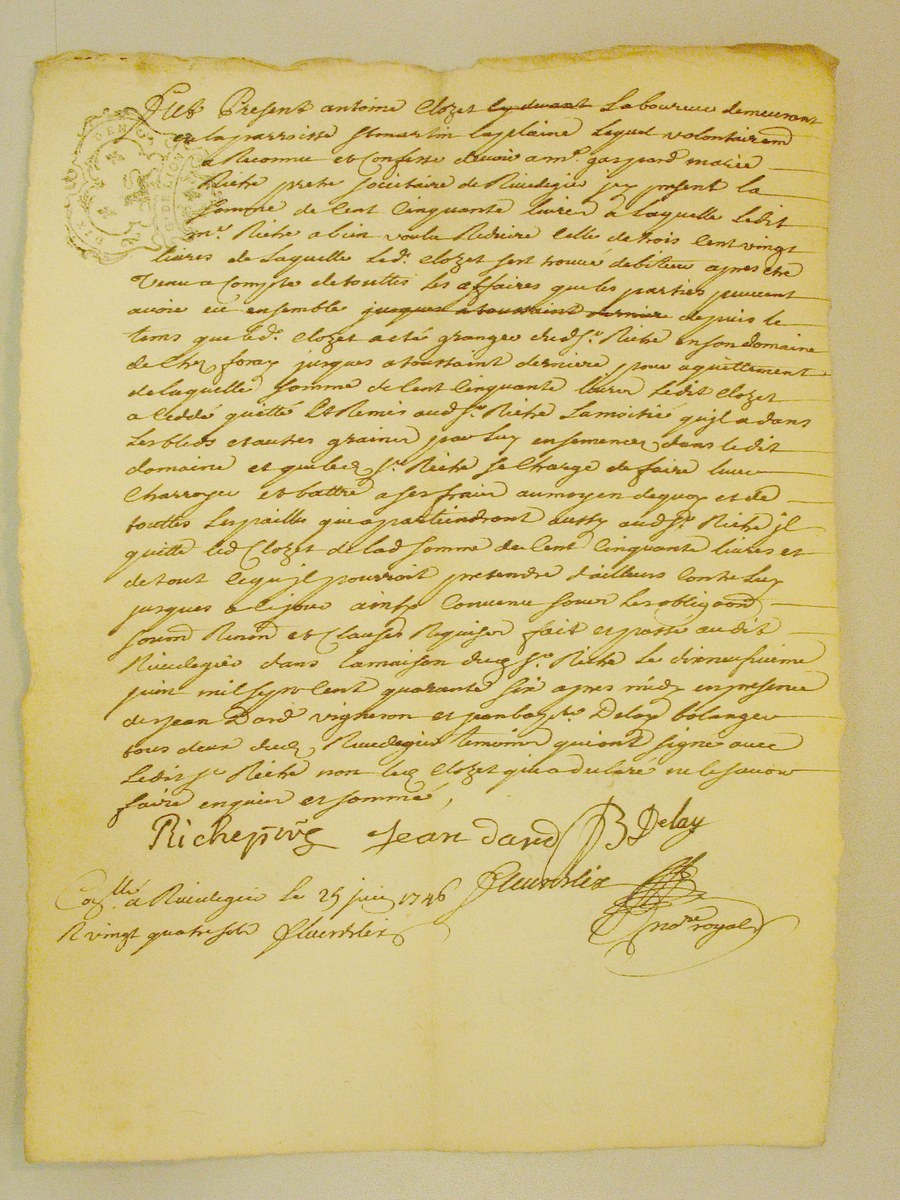 Fut Present antoine Clozet cy devant Laboureur demeurant
en la parroisse St martin La plaine Lequel volontairemt
a Reconnu et Confessé devoir a mre. gaspard
Riché pretre Societaire de Rivedegier jcy present la
Somme de Cent Cinquante livres a Laquelle Ledit
mre. Riché a bien voulu Reduire Celle de trois Cent vingt
livres de Laquelle Led. Clozet sest trouvé debiteur apres etre
Venu a Compte de touttes les affaires que les parties peuvent
avoir eü ensemble jusques a toussaint derniere depuis le
tems que led. Clozet a eté granger dud. Sr. Riché en son domaine
de Chez foray jusques a toussaint derniere pour aquittement
de laquelle Somme de Cent Cinquante livres Ledit Clozet
a Ceddé quitté Et Remis aud. Sr. Riché La moitié qu'jl a dans
Les bleds et autres graines par Luy ensemencés dans ledit
domaine et que led Sr. Riché se Charge de faire
Charroyer et battre a ses frais au moyen de quoy et de
touttes Les pailles qui apartiendront aussy aud. Sr. Riché jl
quitte led Clozet de lad Somme de Cent Cinquante livres et
de tout Ce qu'jl pourroit pretendre d'ailleurs Contre Luy
jusques a Ce jour ainsy Convenu sous Les obligaons
Soumns Renons et Clauses Requises fait et passé audit
Rivedegier dans la maison dud Sr. Riché Le dixneufvieme
juin mil sept Cent quarante six apres midy en presence
de Jean Dard vigneron et jean bapte. Delay bolanger
tous deux dud Rivedegier temoins qui ont signé avec
Ledit Sr. Riché non led Clozet qui a declaré ne le scavoir
faire enquis et sommé,
Riche Jean dard JB Delay
Collé. a Rivedegier le 25 juin 1746 fleurdelix
R vingt quatre sols fleurdelix nore royal